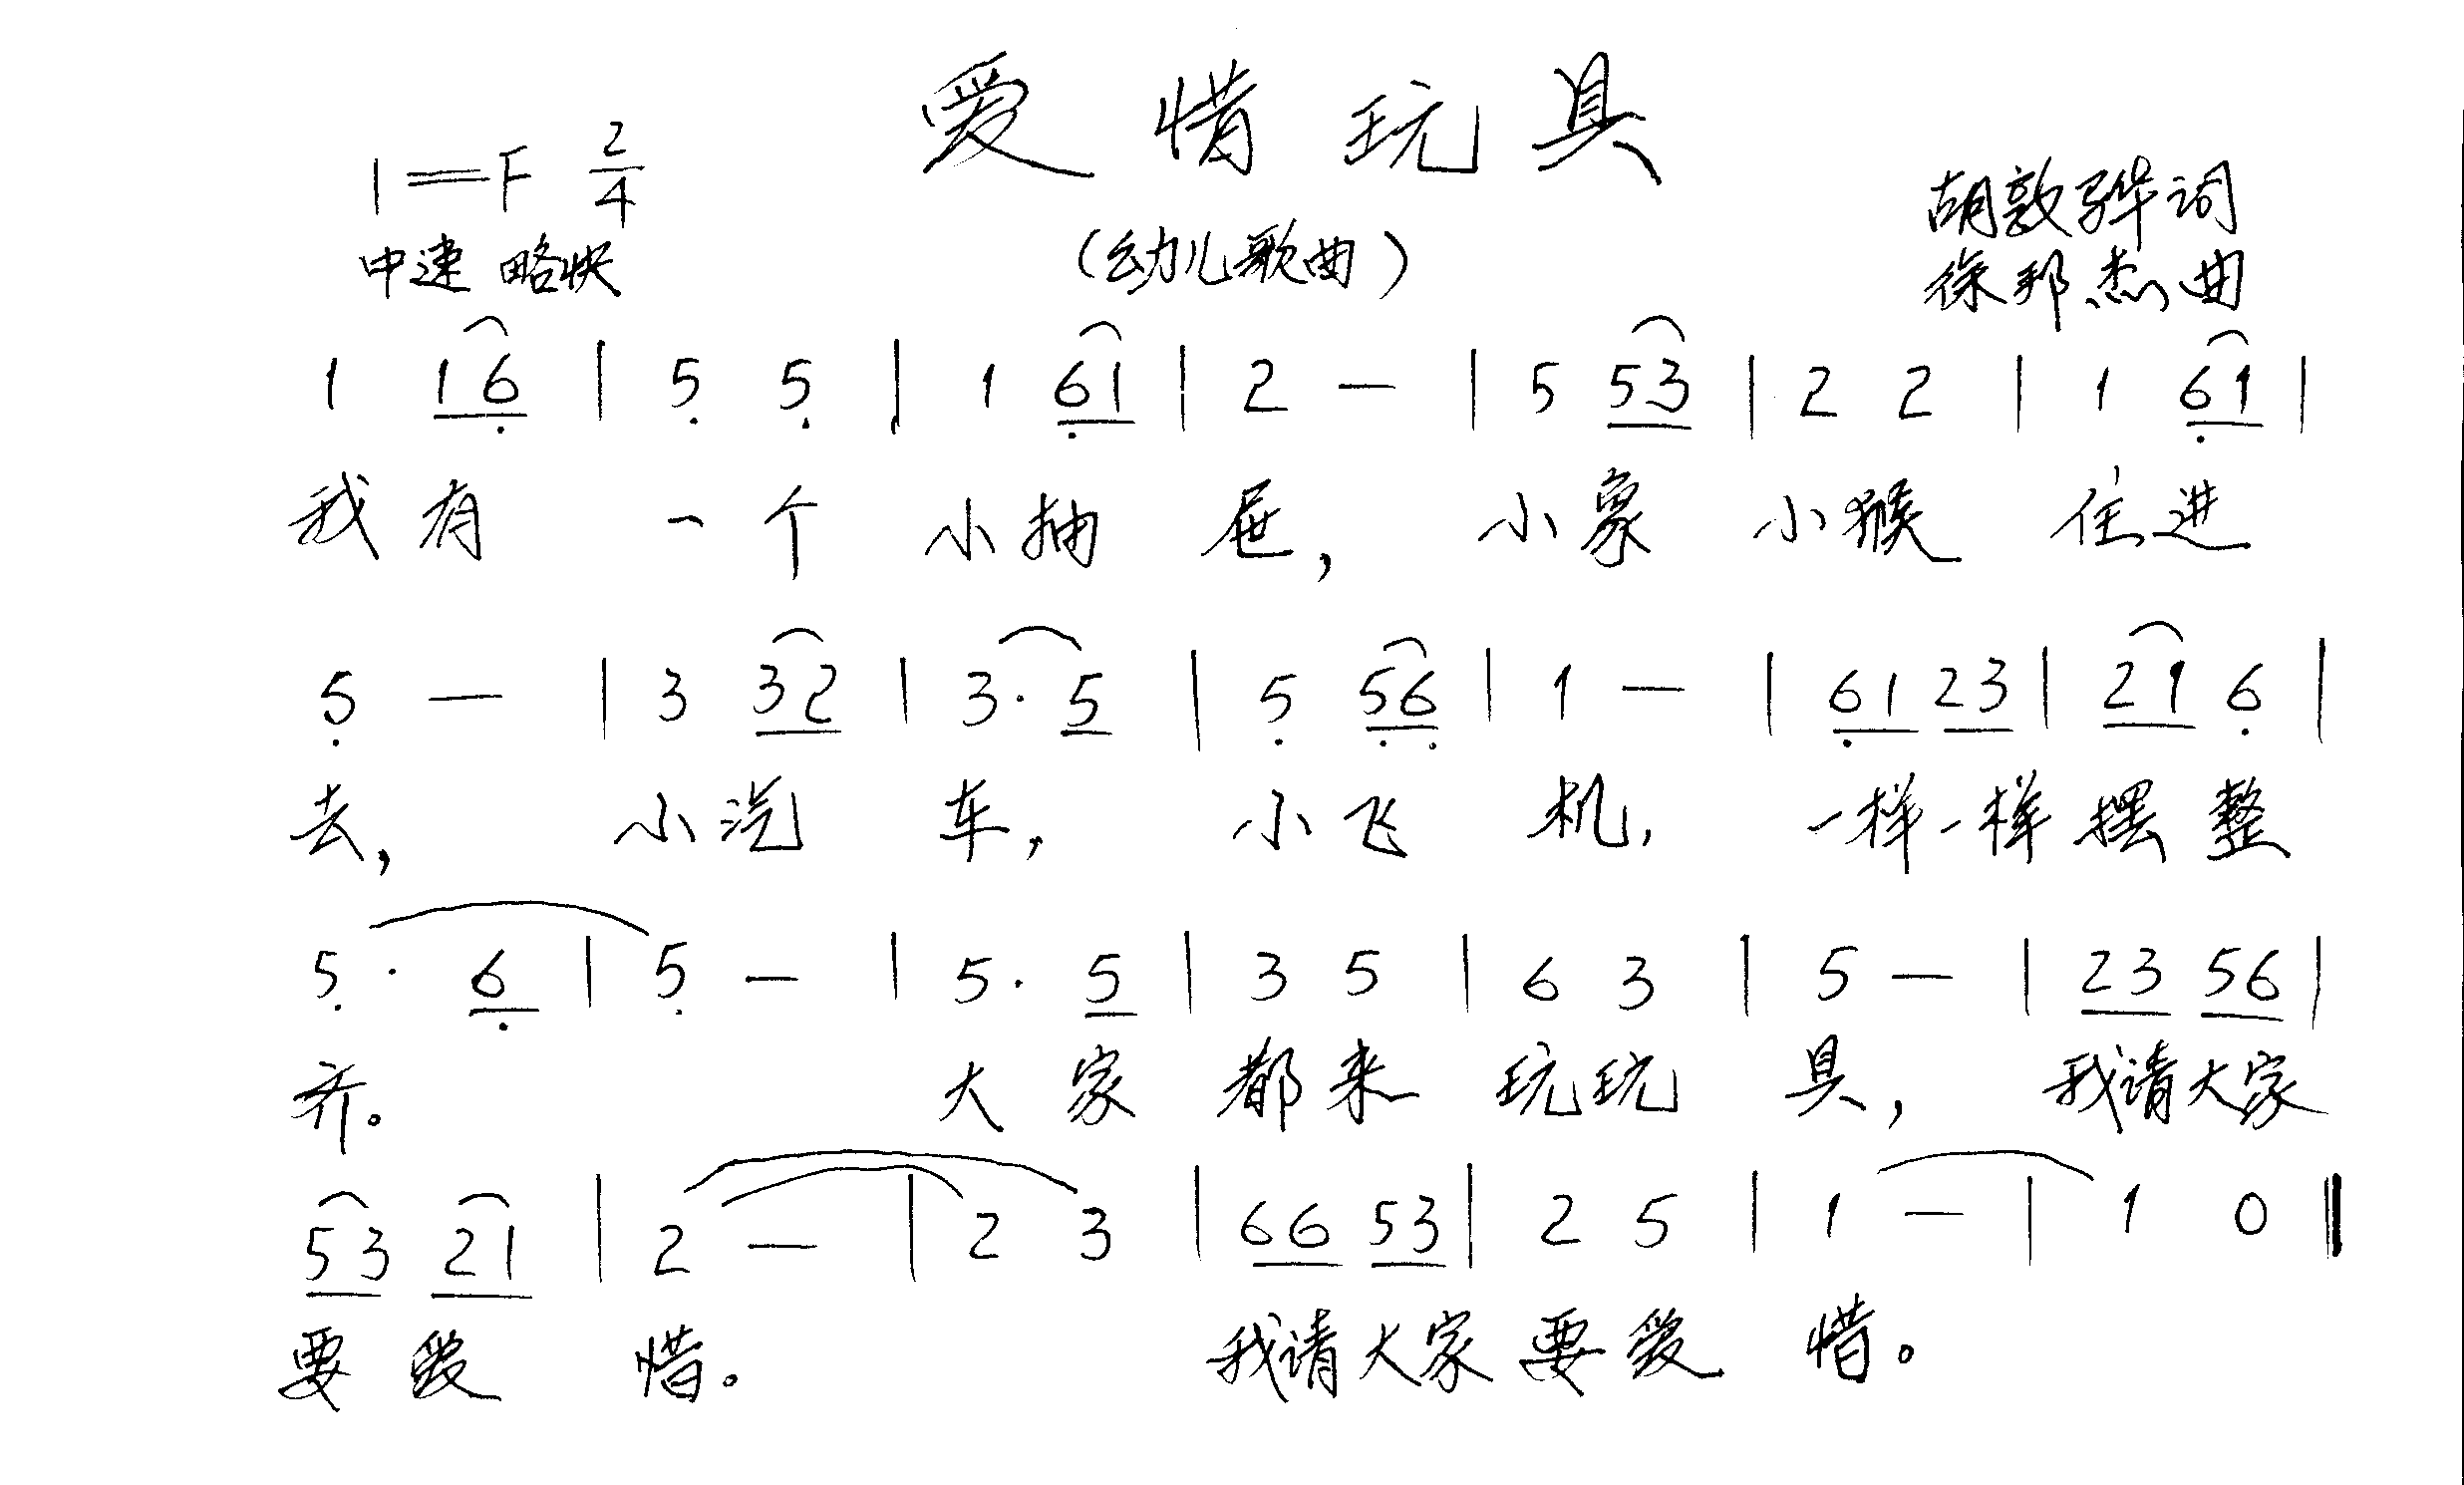 爱惜玩具
1=F 2/4
中速 略快
(幼儿歌曲)
胡敦骅词
徐邦杰曲
1 16 | 5 5 | 1 61 | 2 — | 5 53 | 2 2 | 1 61 |
我有 一个 小抽 屉, 小象 小猴 住进
5 — | 3 32 | 3· 5 | 5 56 | 1 — | 61 23 | 21 6 |
去, 小汽 车, 小飞 机, 一样一样 摆整
5· 6 | 5 — | 5· 5 | 3 5 | 6 3 | 5 — | 23 56 |
齐。 大家 都来 玩玩 具, 我请大家
53 21 | 2 — | 2 3 | 66 53 | 2 5 | 1 — | 1 0 ‖
要爱 惜。 我请大家 要爱 惜。